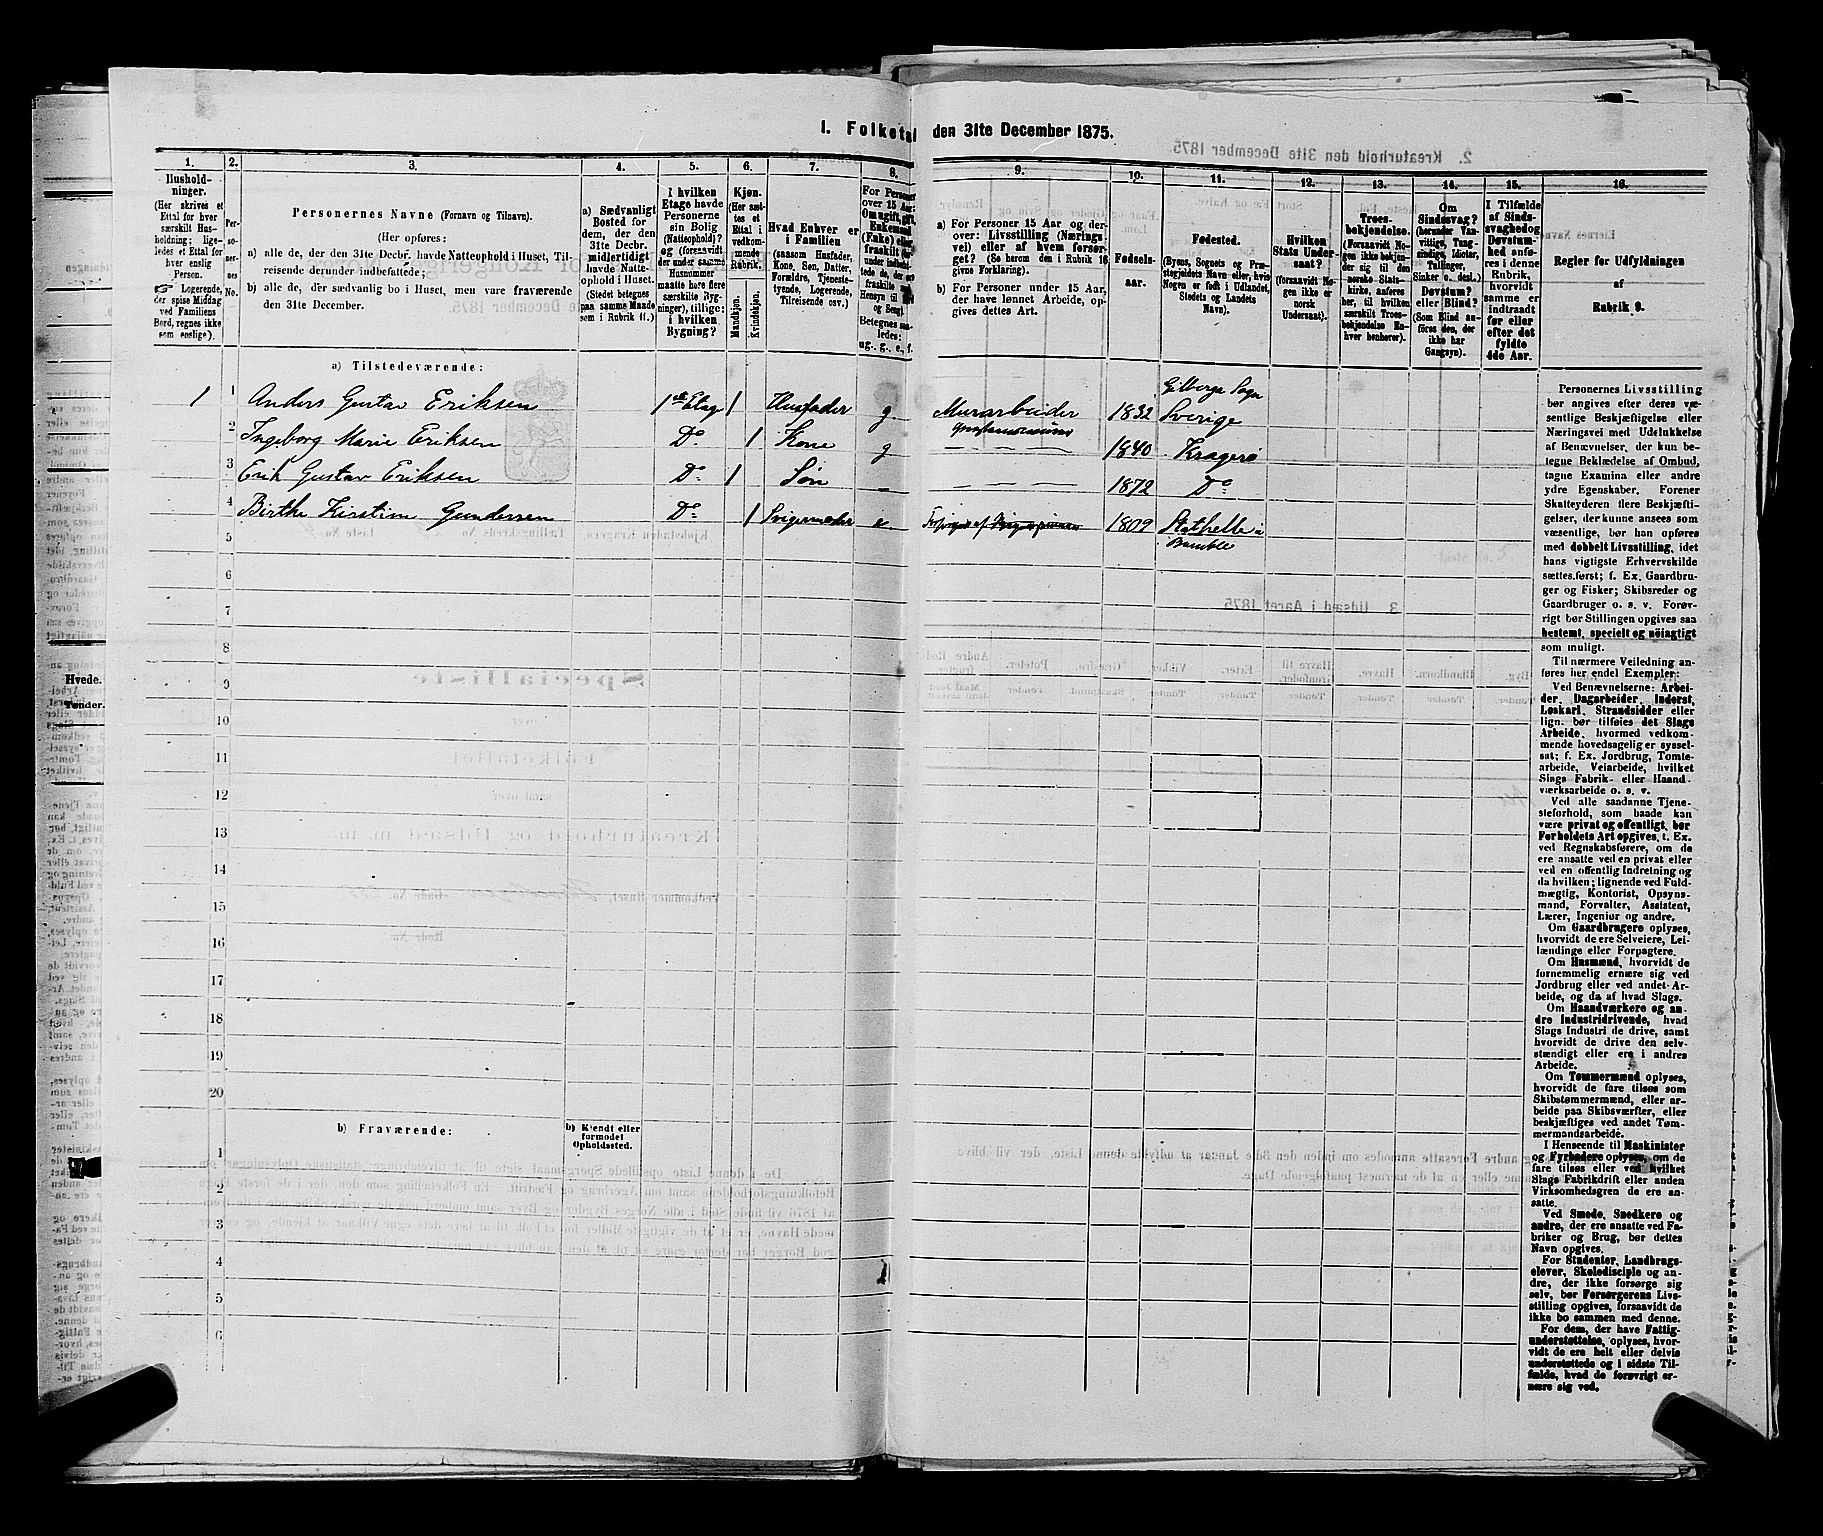 I. Folketal den 31te December 1875.
1. 2. 3. 4. 5. 6. 7. 8. 9. 10. 11. 12. 13. 14. 15. 16.
Hushold-
ninger.
(Her skrives et
Ettal for hver
særskilt Hus-
holdning; lige-
ledes et Ettal for
hver enslig
Person.
Logerende,
der spise Middag
ved Familiens
Bord, regnes ikke
som enslige).
Per-
so-
ner-
nes
No.
Personernes Navne (Fornavn og Tilnavn).
(Her opføres:
a) alle de, der den 31te Decbr. havde Natteophold i Huset, Til-
reisende derunder indbefattede;
b) alle de, der sædvanlig bo i Huset, men vare fraværende
den 31te December.
a) Sædvanligt
Bosted for
dem, der den
31te Decbr.
midlertidigt
havde Natte-
ophold i Huset.
(Stedet betegnes
paa samme Maade
som i Rubrik 11.)
I hvilken
Etage havde
Personerne
sin Bolig
(Natteophold)?
og (forsaavidt
der under samme
Husnummer
maatte høre flere
særskilte Byg-
ninger), tillige:
i hvilken
Bygning?
Kjøn.
(Her sæt-
tes et
Ettal i
vedkom-
mende
Rubrik.
Mandkjøn.
Kvindekjøn.
Hvad Enhver er
i Familien
(saasom Husfader,
Kone, Søn, Datter,
Forældre, Tjeneste-
tyende, Logerende,
Tilreisende osv.)
For Personer
over 15 Aar:
Om ugift, gift,
Enkemand
(Enke) eller
fraskilt
Betegnes saa-
ledes:
ug., g., e., f.
a) For Personer 15 Aar og der-
over: Livsstilling (Nærings-
vei) eller af hvem forsør-
get? (Se herom den i Rubrik 16
givne Forklaring).
b) For Personer under 15 Aar,
der have lønnet Arbeide, op-
gives dettes Art.
Fødsels-
aar.
Fødested.
(Byens, Sognets og Præ-
stegjeldets Navn eller, hvis
Nogen er født i Udlandet,
Stedets og Landets
Navn).
Hvilken
Stats Under-
saat?
(forsaavidt No-
gen ikke er
norsk
Undersaat).
Troes-
bekjendelse.
(Forsaavidt No-
gen ikke bekjen-
der sig til den
norske Stats-
kirke, anføres
her, til hvilken
særskilt Troes-
bekjendelse En-
hver henhører).
Om
Sindssvag?
(herunder Van-
vittige, Tung-
sindige, Idioter,
Tullinger,
Sinker o. desl.)
Døvstum?
eller Blind?
(Som Blind an-
føres den, der
ikke har
Gangsyn).
I Tilfælde
af Sinds-
svaghed og
Døvstum-
hed anfø-
res i denne
Rubrik,
hvorvidt
samme er
indtraadt
før eller
efter det
fyldte
4de Aar.
Regler for Udfyldningen
af
Rubrik 9.
a) Tilstedeværende:
Gilberga Sogn
1 1 Anders Gustav Eriksen 1ste Etag 1 Husfader g Murarbeider 1832 Sverige
2 Ingeborg Marie Eriksen Do 1 Kone g 1840 Kragerø
3 Erik Gustav Eriksen Do 1 Søn 1872 Do
4 Birthe Kirstine Gundersen Do 1 Svigermoder e 1809 Stathelle i
Bamble
5
6
7
8
9
10
11
12
13
14
15
16
17
18
19
20
b) Fraværende:
b) Kjendt eller
formodet
Opholdssted.
1
2
3
4
5
6
Personernes Livsstilling
bør angives efter deres væ-
sentlige Beskjæftigelse eller
Næringsvei med Udelukkelse
af Benævnelser, der kun be-
tegne Beklædelse af Ombud,
tagne Examina eller andre
ydre Egenskaber. Forener
Skatteyderen flere Beskjæfti-
gelser, der kunne ansees som
væsentlige, bør han opføres
med dobbelt Livsstilling, idet
hans vigtigste Erhvervskilde
sættes først; f. Ex. Gaardbru-
ger og Fisker; Skibsreder og
Gaardbruger o. s. v. Forøv-
rigt bør Stillingen opgives saa
bestemt, specielt og nöiagtigt
som muligt.
Til nærmere Veiledning an-
føres her endel Exempler:
Ved Benævnelserne: Arbei-
der, Dagarbeider, Inderst,
Løskarl, Strandsidder eller
lign. bør tilføies det Slags
Arbeide, hvormed vedkom-
mende hovedsagelig er syssel-
sat; f. Ex. Jordbrug, Tomte-
arbeide, Veiarbeide, hvilket
Slags Fabrik- eller Haand-
værksarbeide o. s. v.
Ved alle saadanne Tjene-
steforhold, som baade kan
være privat og offentligt, bør
Forholdets Art opgives, t. Ex.
ved Regnskabsførere, om de
ere ansatte ved en privat eller
ved en offentlig Indretning og
da hvilken; lignende ved Fuld-
mægtig, Kontorist, Opsyns-
mand, Forvalter, Assistent,
Lærer, Ingeniør og andre.
Om Gaardbrugere oplyses,
hvorvidt de ere Selveiere, Lei-
lændinge eller Forpagtere.
Om Husmænd, hvorvidt de
fornemmelig ernære sig ved
Jordbrug eller ved andet Ar-
beide, og da af hvad Slags.
Om Haandværkere og an-
dre Industridrivende, hvad
Slags Industri de drive, samt
hvorvidt de drive den selv-
stændigt eller ere i andres
Arbeide.
Om Tømmermænd oplyses,
hvorvidt de fare tilsøs som
Skibstømmermænd, eller ar-
beide paa Skibsværfter, eller
beskjæftiges ved andet Tøm-
mermandsarbeide.
I Henseende til Maskinister
og Fyrbødere oplyses, om de
fare tilsøs eller ved hvilket
Slags Fabrikdrift eller anden
Virksomhedsgren de ere an-
satte.
Ved Smede, Snedkere og
andre, der ere ansatte ved Fa-
briker og Brug, bør dettes
Navn opgives.
For Studenter, Landbrugs-
elever, Skoledisciple og an-
dre, der ikke forsørge sig
selv, bør Forsørgerens Livs-
stilling opgives, forsaavidt de
ikke bo sammen med denne.
For dem, der have Fattig-
understøttelse, oplyses, hvor-
vidt de ere helt eller delvis
understøttede og i sidste Til-
fælde, hvad de forøvrigt er-
nære sig ved.
Hvede.
Tønder.